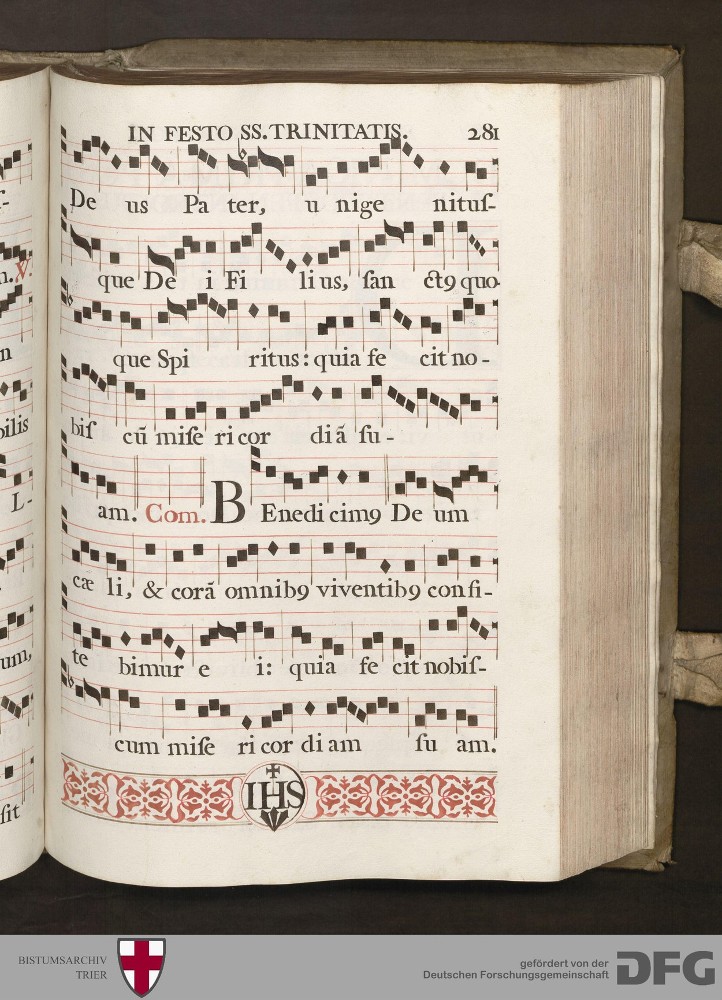 IN FESTO SS. TRINITATIS. 281
De us Pa ter, u nige nituſ-
que De i Fi li us, ſan ct9 quo-
que Spi ritus: quia fe cit no-
biſ cū miſe ri cor di ā ſu-
am. Com. BEnedi cim9 De um
cæ li, & corā omnib9 viventib9 con fi-
te bimur e i: quia fe cit nobiſ-
cum miſe ri cor di am ſu am.
IHS
n. V.
n
bilis
L-
um,
ſit
BISTUMSARCHIV
TRIER
gefördert von der
Deutschen Forschungsgemeinschaft
DFG